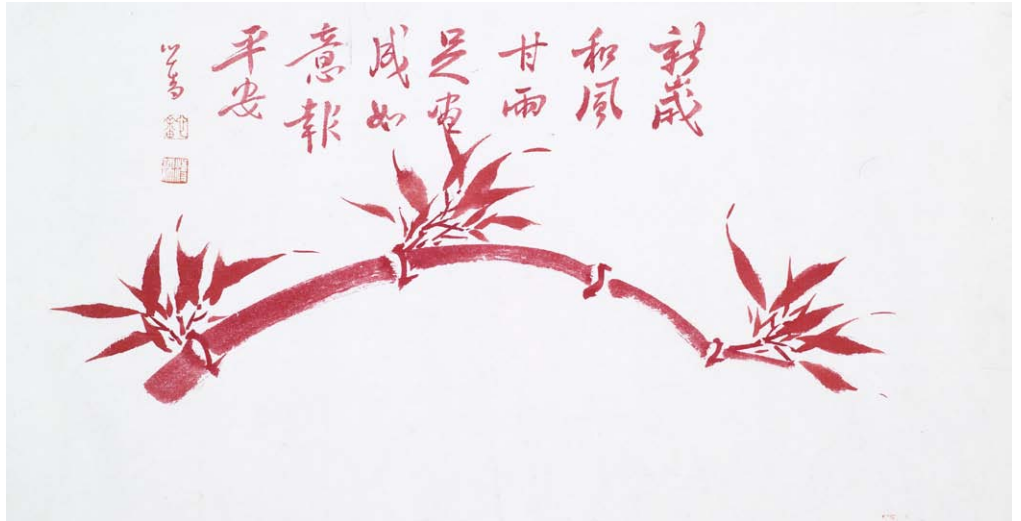 新歲
和風
甘雨
足畫
成如
意報
平安
心畬